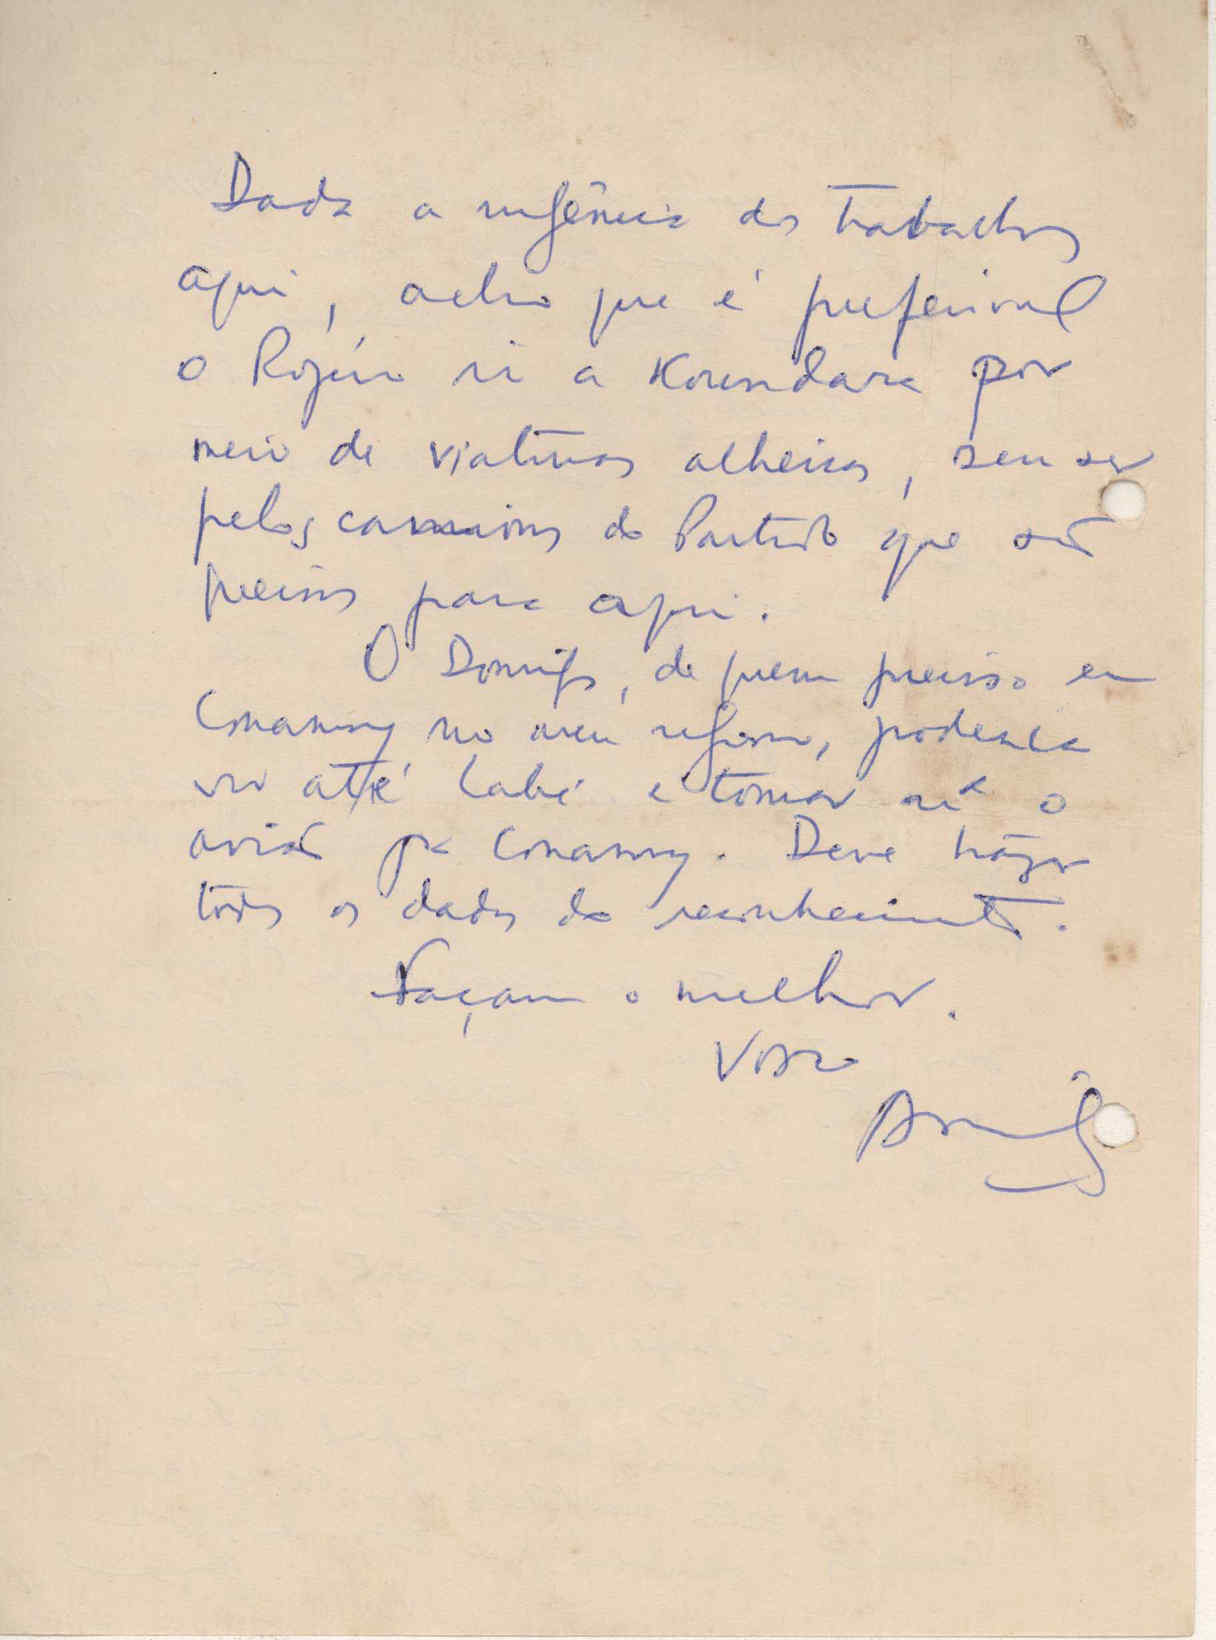 Dada a urgência dos trabalhos
aqui, acho que é preferivel
o Rogério ir a Koundara por
meio de viaturas alheias, sem ser
pelos camions do Partido que são
precisos para aqui.
O Domingos, de quem preciso em
Conakry no meu regresso, poderá
vir até Labé e tomar aí o
avião pa Conakry. Deve trazer
todos os dados do reconhecimento.
Façam o melhor.
Vosso